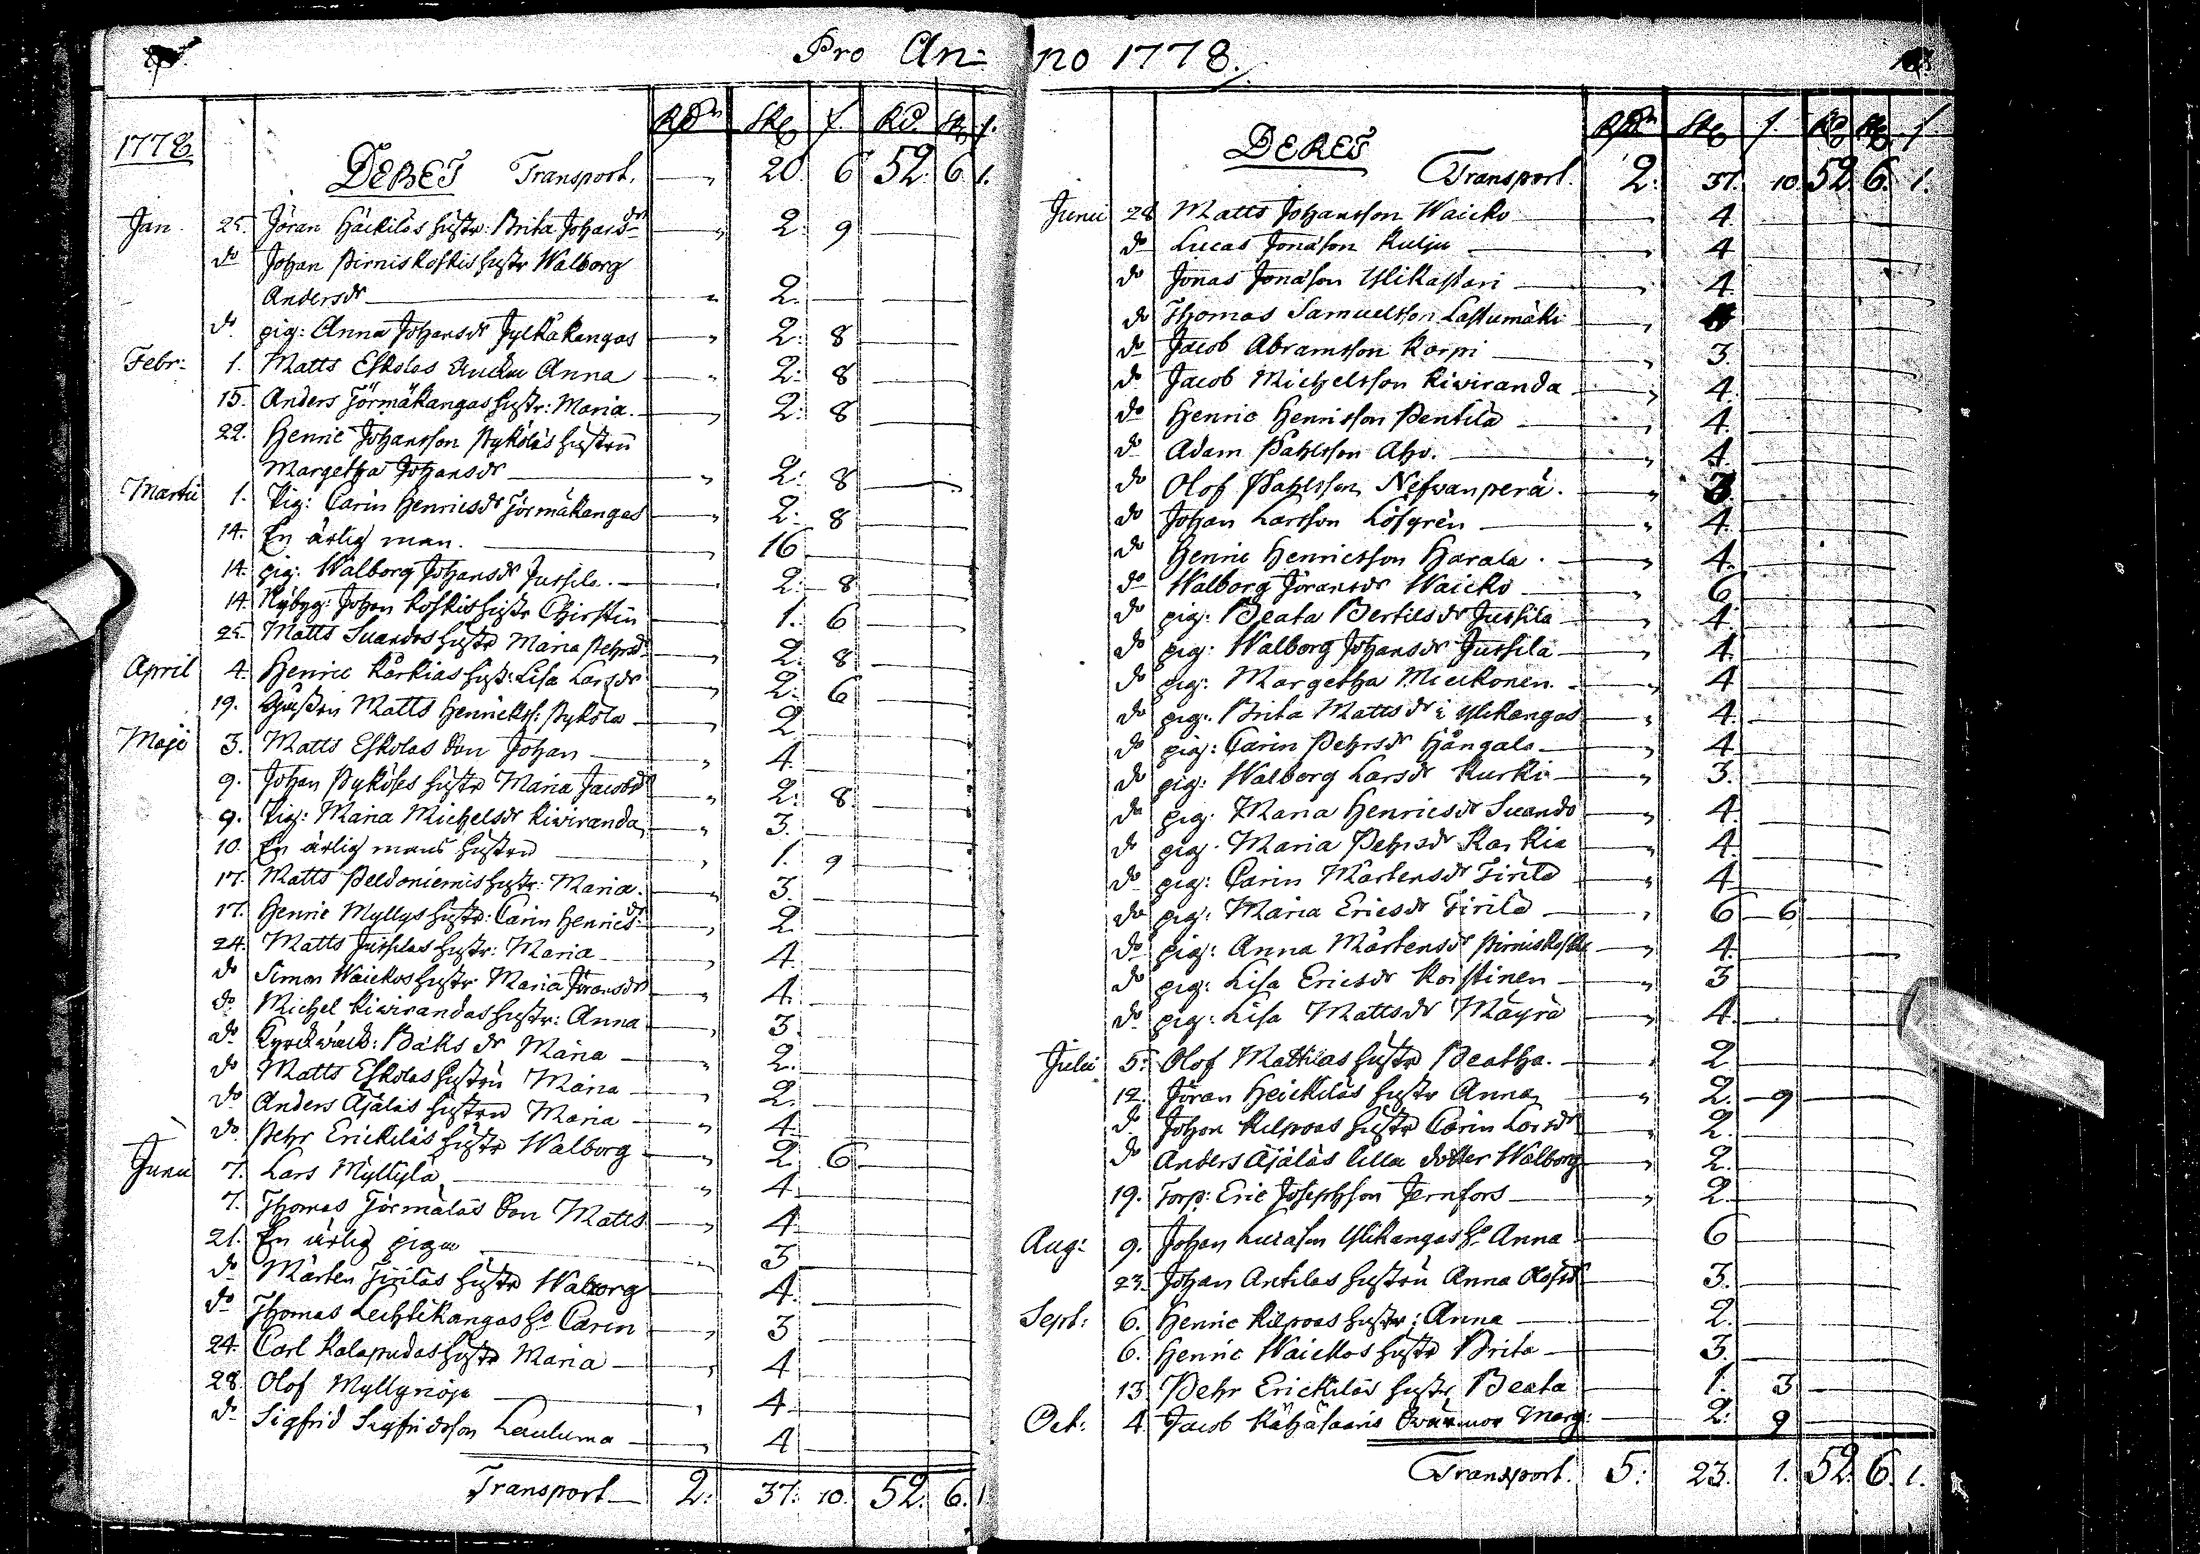 Pro Anno 1778.
Rdr Sk f. Rd. Sk f.
1778
DEBET Transport. — 20. 6 52. 6. 1.
Jan. 25. Jöran Häckiläs hustr: Brita Johansdr — 2. 9
do Johan Pirniskoskis hustr Walborg
Andersdr — 2.
do pig: Anna Johansdr Jylkäkangas — 2: 8
Febr: 1. Matts Eskolas Anna — 2: 8
15. Anders Törmäkangas hustr: Maria. — 2: 8
22. Henric Johansson Pyköläs hustru
Margetha Johansdr — 2: 8
Martii 1. Pig: Carin Henricsdr Törmäkangas — 2: 8
14. En ärlig man. — 16
14. pig. Walborg Johansdr Jussila. — 2: 8
14. Nybyg: Johan Koskis hustr Chirstin — 1. 6
25. Matts Suandos hustr Maria Pehrsdr — 2: 8
April 4. Henric Karkias hust: Lisa Larsdr — 2. 6
19. Matts Henricss: Pykölä — 2
Maji 3. Matts Eskolas Son Johan — 4
9. Johan Pyköles hustr Maria Jacobsdr — 2: 8
9. Pig: Maria Michelsdr Kiviranda — 3.
10. En ärlig mans hustru — 1. 9
17. Matts Peldoniemis hustr: Maria. — 3.
17. Henric Myllys hustr: Carin Henricsdr — 2
24. Matts Jussilas hustr: Maria — 4
do Simon Waickos hustr Maria Jöransdr — 4.
do Michel Kiwirandas hustr: Anna — 3.
do Kyrckwäck: Bäks dr Maria — 2.
do Matts Eskolas hustru Maria — 2.
do Anders Ajäläs hustru Maria — 4
do Pehr Erickiläs hustr Walborg — 2 6
Junii 7. Lars Myllylä — 4
7. Thomas Törmäläs Son Matts — 4
21. En ärlig piga — 3
do Mårten Tiriläs hustr Walborg — 4
do Thomas Lechtikangas hs Carin — 3
24. Carl Kalapudas hustr Maria — 4
28. Olof Myllynoja — 4
do Sigfrid Sigfridsson Lauluma — 4
Transport — 2: 37: 10. 52. 6. 1
Rdr Sk f. Rd Sk f
DEBET
Transport. 2: 37. 10. 52. 6. 1.
Junii 28 Matts Johansson Waicko — 4.
do Lucas Jonasson Kulju — 4
do Jonas Jonasson Ylikastari — 4
do Thomas Samuelsson Lastumäki —
do Jacob Abramsson Karpi — 3.
do Jacob Michelsson Kiwiranda — 4.
do Henric Henrisson Pentilä — 4.
do Adam Pahlsson Aho. — 4.
do Olof Pahlsson Nefwanperä. — 3.
do Johan Larsson Löfgren — 4.
do Henric Henricsson Harala. — 4.
do Walborg Jöransdr Waicko — 6
do pig: Beata Bertilsdr Jussila — 4.
do pig: Walborg Johansdr Jussila — 4.
do pig: Margetha Mieckonen. — 4
do pig: Brita Mattsdr i Ylikangas — 4.
do pig: Carin Pehrsdr Hångala — 4.
do pig: Walborg Larsdr Kurki — 3.
do pig. Maria Henricsdr Suando — 4.
do pig. Maria Pehrsdr Karkia — 4.
do pig: Carin Mårtensdr Tirilä — 4
do pig: Maria Ericsdr Tirilä — 6 6
do pig: Anna Mårtensdr Pirniskoski — 4.
do pig: Lisa Ericsdr Koistinen — 3
do pig: Lisa Mattsdr Mäyrä — 4.
Julii 5. Olof Mattilas hustr Beatha. — 2
12. Jöran Heickiläs hustr Anna — 2. 9
do Johan Kilpoas hustr Carin Larsdr — 2.
do Anders Ajäläs lilla dotter Walborg — 2.
19. Torp: Eric Josephsson Jernfors — 2
Aug: 9. Johan Lucasson Ylikangas hs Anna — 6
23. Johan Antilas hustru Anna Olofsdr — 3.
Sept: 6. Henric Kilpoas hustr: Anna — 2.
6. Henric Waickos hustr Brita — 3.
13 Pehr Erickiläs hustr Beata — 1. 3
Oct: 4. Jacob Kähäsaaris Swärmor Marg: — 2: 9
Transport. 5: 23. 1. 52. 6. 1.